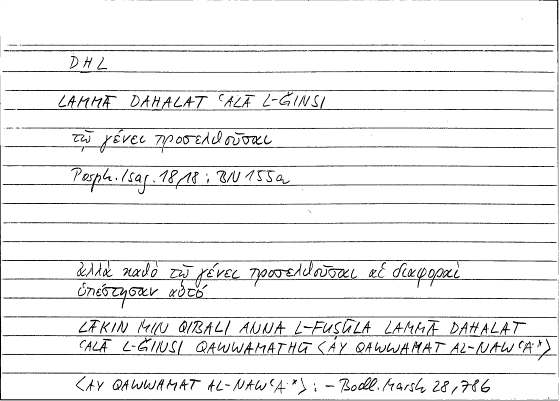 DHL
LAMMĀ DAḪALAT ʿALĀ L-ǦINSI
τῷ γένει προσελθοῦσαι
Porph. Isag. 18,18 ; BN 155a
ἀλλὰ καθὸ τῷ γένει προσελθοῦσαι αἱ διαφοραὶ
ὑπέστησαν αὐτό
LĀKIN MIN QIBALI ANNA L-FUṢŪLA LAMMĀ DAḪALAT
ʿALĀ L-ǦINSI QAWWAMATHŪ <AY QAWWAMAT AL-NAWʿA.*>
<AY QAWWAMAT AL-NAWʿA.*> : – Bodl. Marsh 28,786